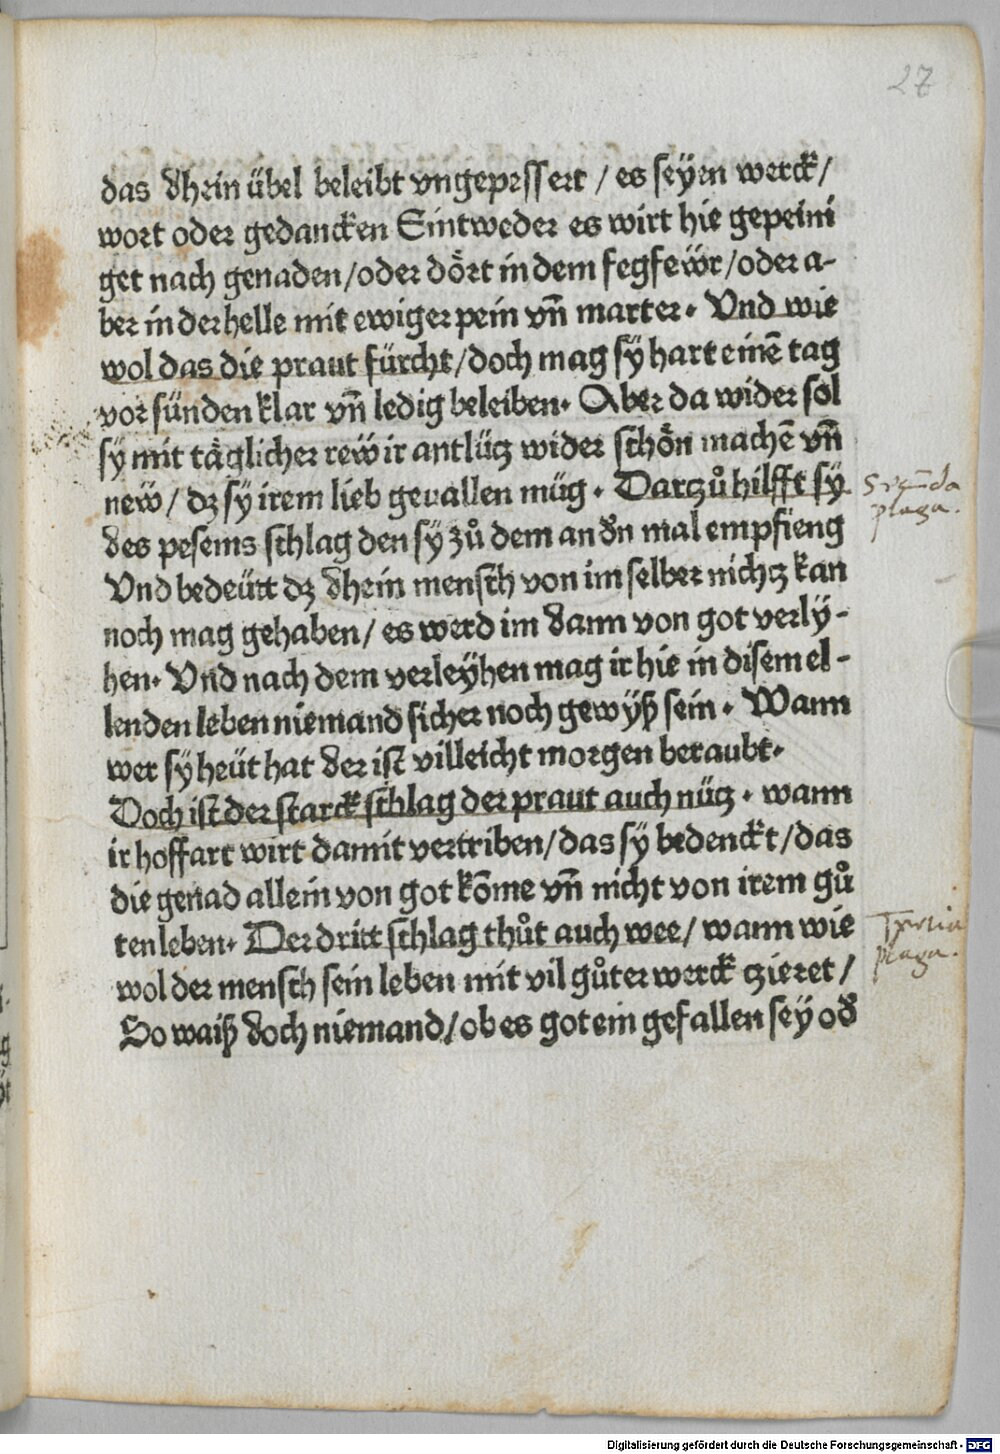 27
das dhein übel beleibt vngepessert / es seyen werck /
wort oder gedancken Eintweder es wirt hie gepeini
get nach genaden / oder dört in dem fegfewr / oder a-
ber in der helle mit ewiger pein vn̄ marter. Vnd wie
wol das die praut fürcht / doch mag sy hart einē tag
vor sünden klar vn̄ ledig beleiben. Aber da wider sol
sy mit täglicher rew ir antlütz wider schön machē vn̄
new / dz sy irem lieb geuallen müg. Dartzů hilfft sy
Secūda
des pesems schlag den sy zů dem andn mal empfieng
plaga.
Vnd bedeütt dz dhein mensch von im selber nichtz kan
noch mag gehaben / es werd im dann von got verly-
hen. Vnd nach dem verleyhen mag ir hie in disem el-
lenden leben niemand sicher noch gewyß sein. Wann
wer sy heüt hat der ist villeicht morgen beraubt.
Doch ist der starck schlag der praut auch nütz. wann
ir hoffart wirt damit vertriben / das sy bedenckt / das
die genad allein von got kōme vn̄ nicht von irem gů
ten leben. Der dritt schlag thůt auch wee / wann wie
Tertia
wol der mensch sein leben mit vil gůter werck tzieret /
plaga.
So waiß doch niemand / ob es got ein gefallen sey od
Digitalisierung gefördert durch die Deutsche Forschungsgemeinschaft - DFG